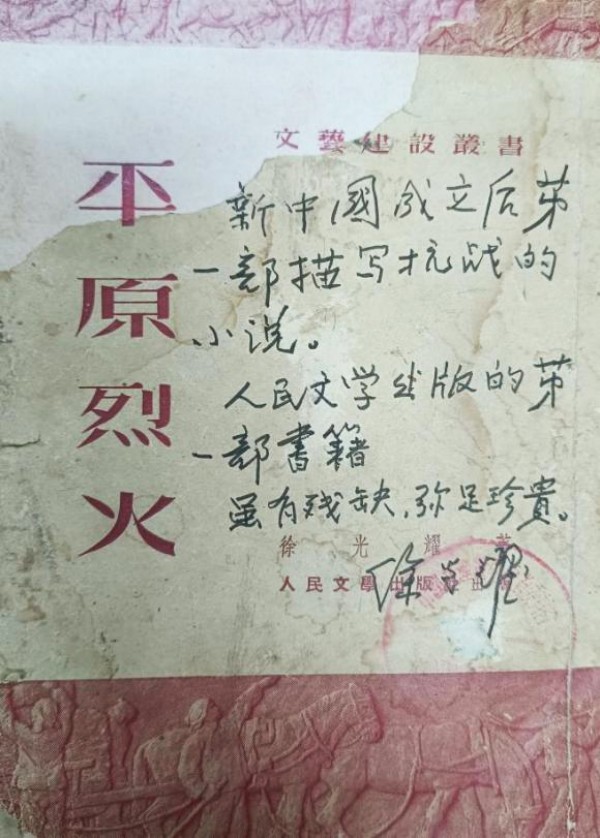 文藝建設叢書
平原烈火
新中國成立后第
一部描写抗战的
小说。
人民文学出版的第
一部書籍
虽有残缺，弥足珍貴。
徐光耀 著
人民文學出版社出
徐光耀